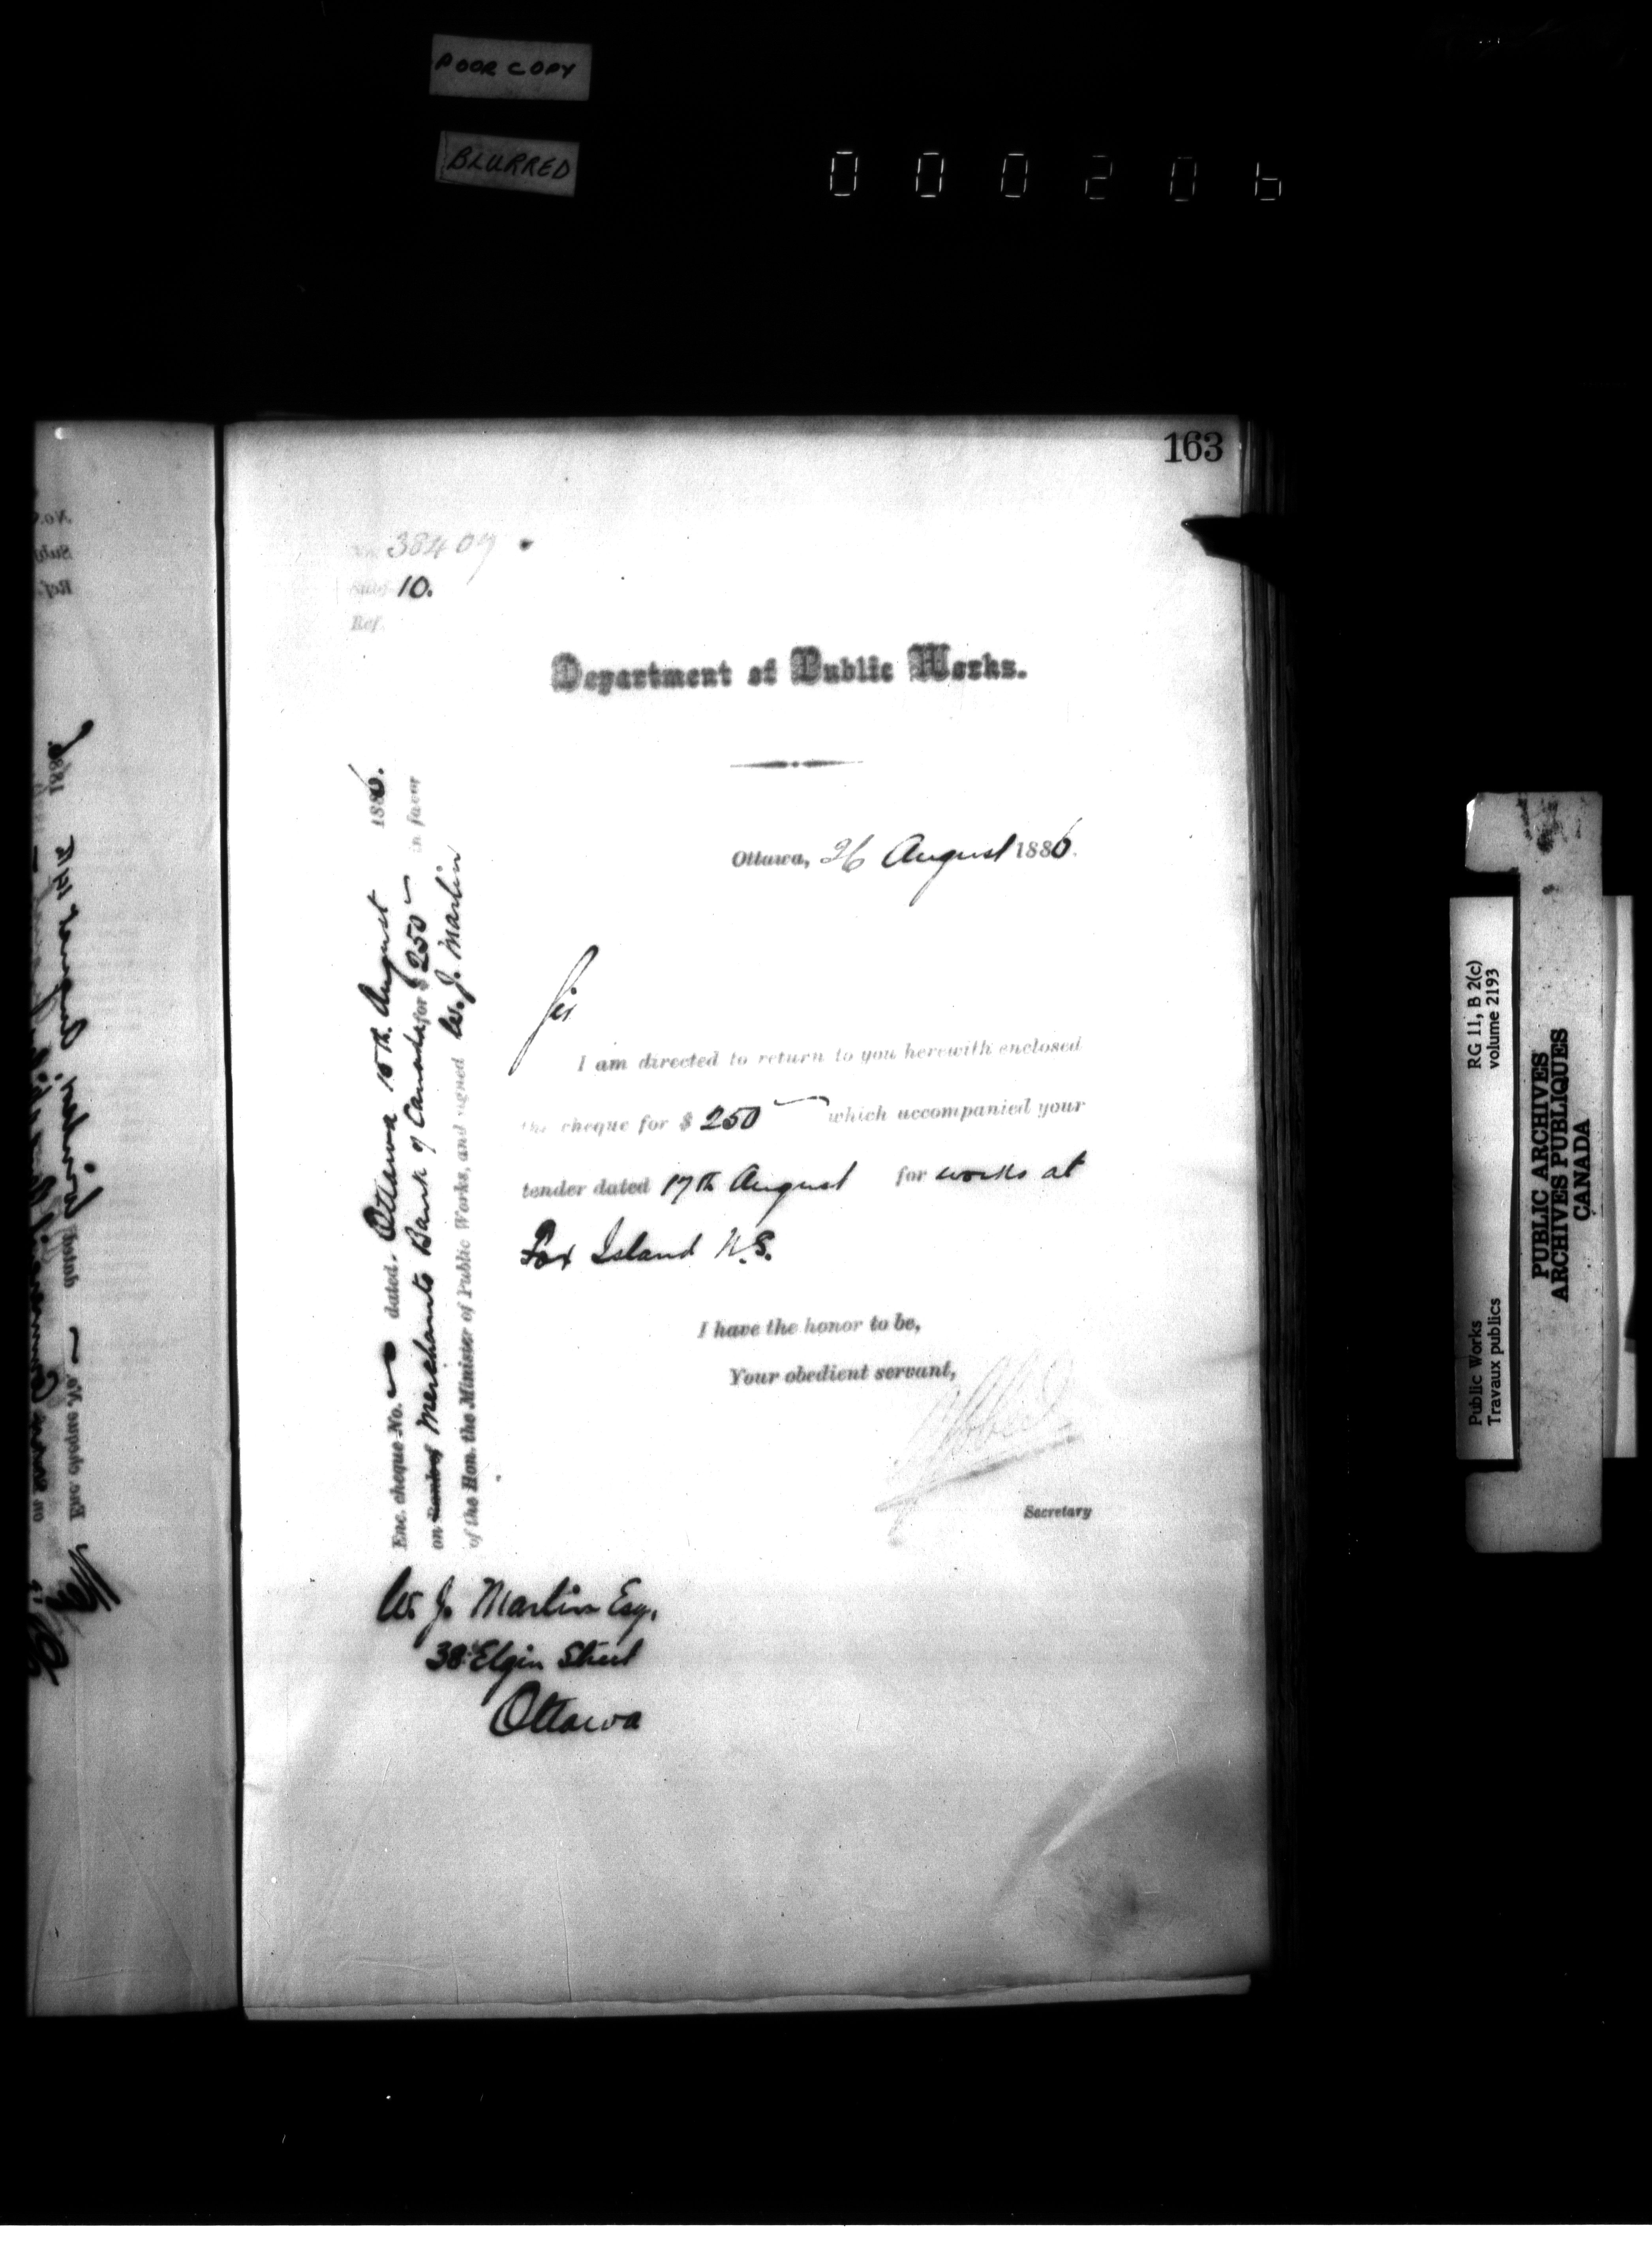 POOR COPY
BLURRED
000206
163
No. 38409
Subj. 10.
Ref.
Department of Public Works.
Ottawa, 26 August 1886.
Sir
I am directed to return to you herewith enclosed
the cheque for $ 250 — which accompanied your
tender dated 17th August for works at
Fox Island N.S.
I have the honor to be,
Your obedient servant,
Secretary
Enc. cheque No. — dated Ottawa 18th August 1886.
on Merchants Bank of Canada for $ 250 — in favor
of the Hon. the Minister of Public Works, and signed W. J. Martin
W. J. Martin Esq.
38 Elgin Street
Ottawa
RG 11, B 2(c)
volume 2193
Public Works
Travaux publics
PUBLIC ARCHIVES
ARCHIVES PUBLIQUES
CANADA